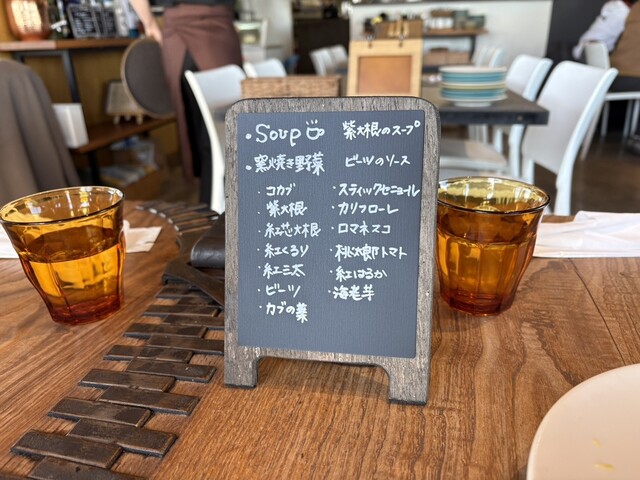 ・Soup 紫大根のスープ
・窯焼き野菜 ビーツのソース
・コカブ
・紫大根
・紅芯大根
・紅くるり
・紅三太
・ビーツ
・カブの葉
・スティックセニョール
・カリフローレ
・ロマネスコ
・桃太郎トマト
・紅はるか
・海老芋